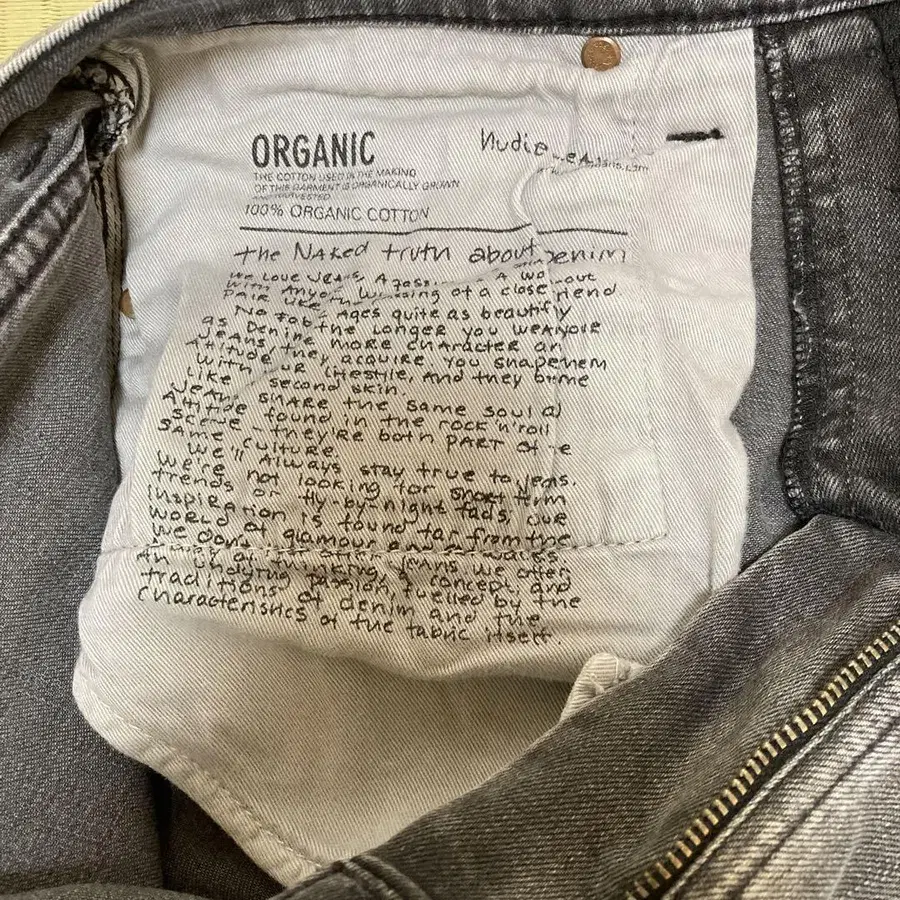 ORGANIC
THE COTTON USED IN THE MAKING
OF THIS GARMENT IS ORGANICALLY GROWN
AND HARVESTED
100% ORGANIC COTTON
Nudie
the Naked truth about Denim
we Love Jeans, A passi
with Anyon
pair Like wearing of a close friend
No fab Ages quite as beautifly
as Denim the Longer you wear your
Jeans, the more character an
Attitude they acquire You shape them
with your Lifestyle, And they b me
Like second skin.
Jeans share the same soul a
Attitude found in the rock'n'roll
scene - they're both part of e
same culture.
We'll Always stay true to jeans.
we're not looking for short term
trends or fly-by-night fads, our
inspiration is found far from the
world of glamour and
we don't
way of thinking, jeans we offer
An undying passion, A concept and
traditions fuelled by the
characteristics of denim and the
of the fabric itself.